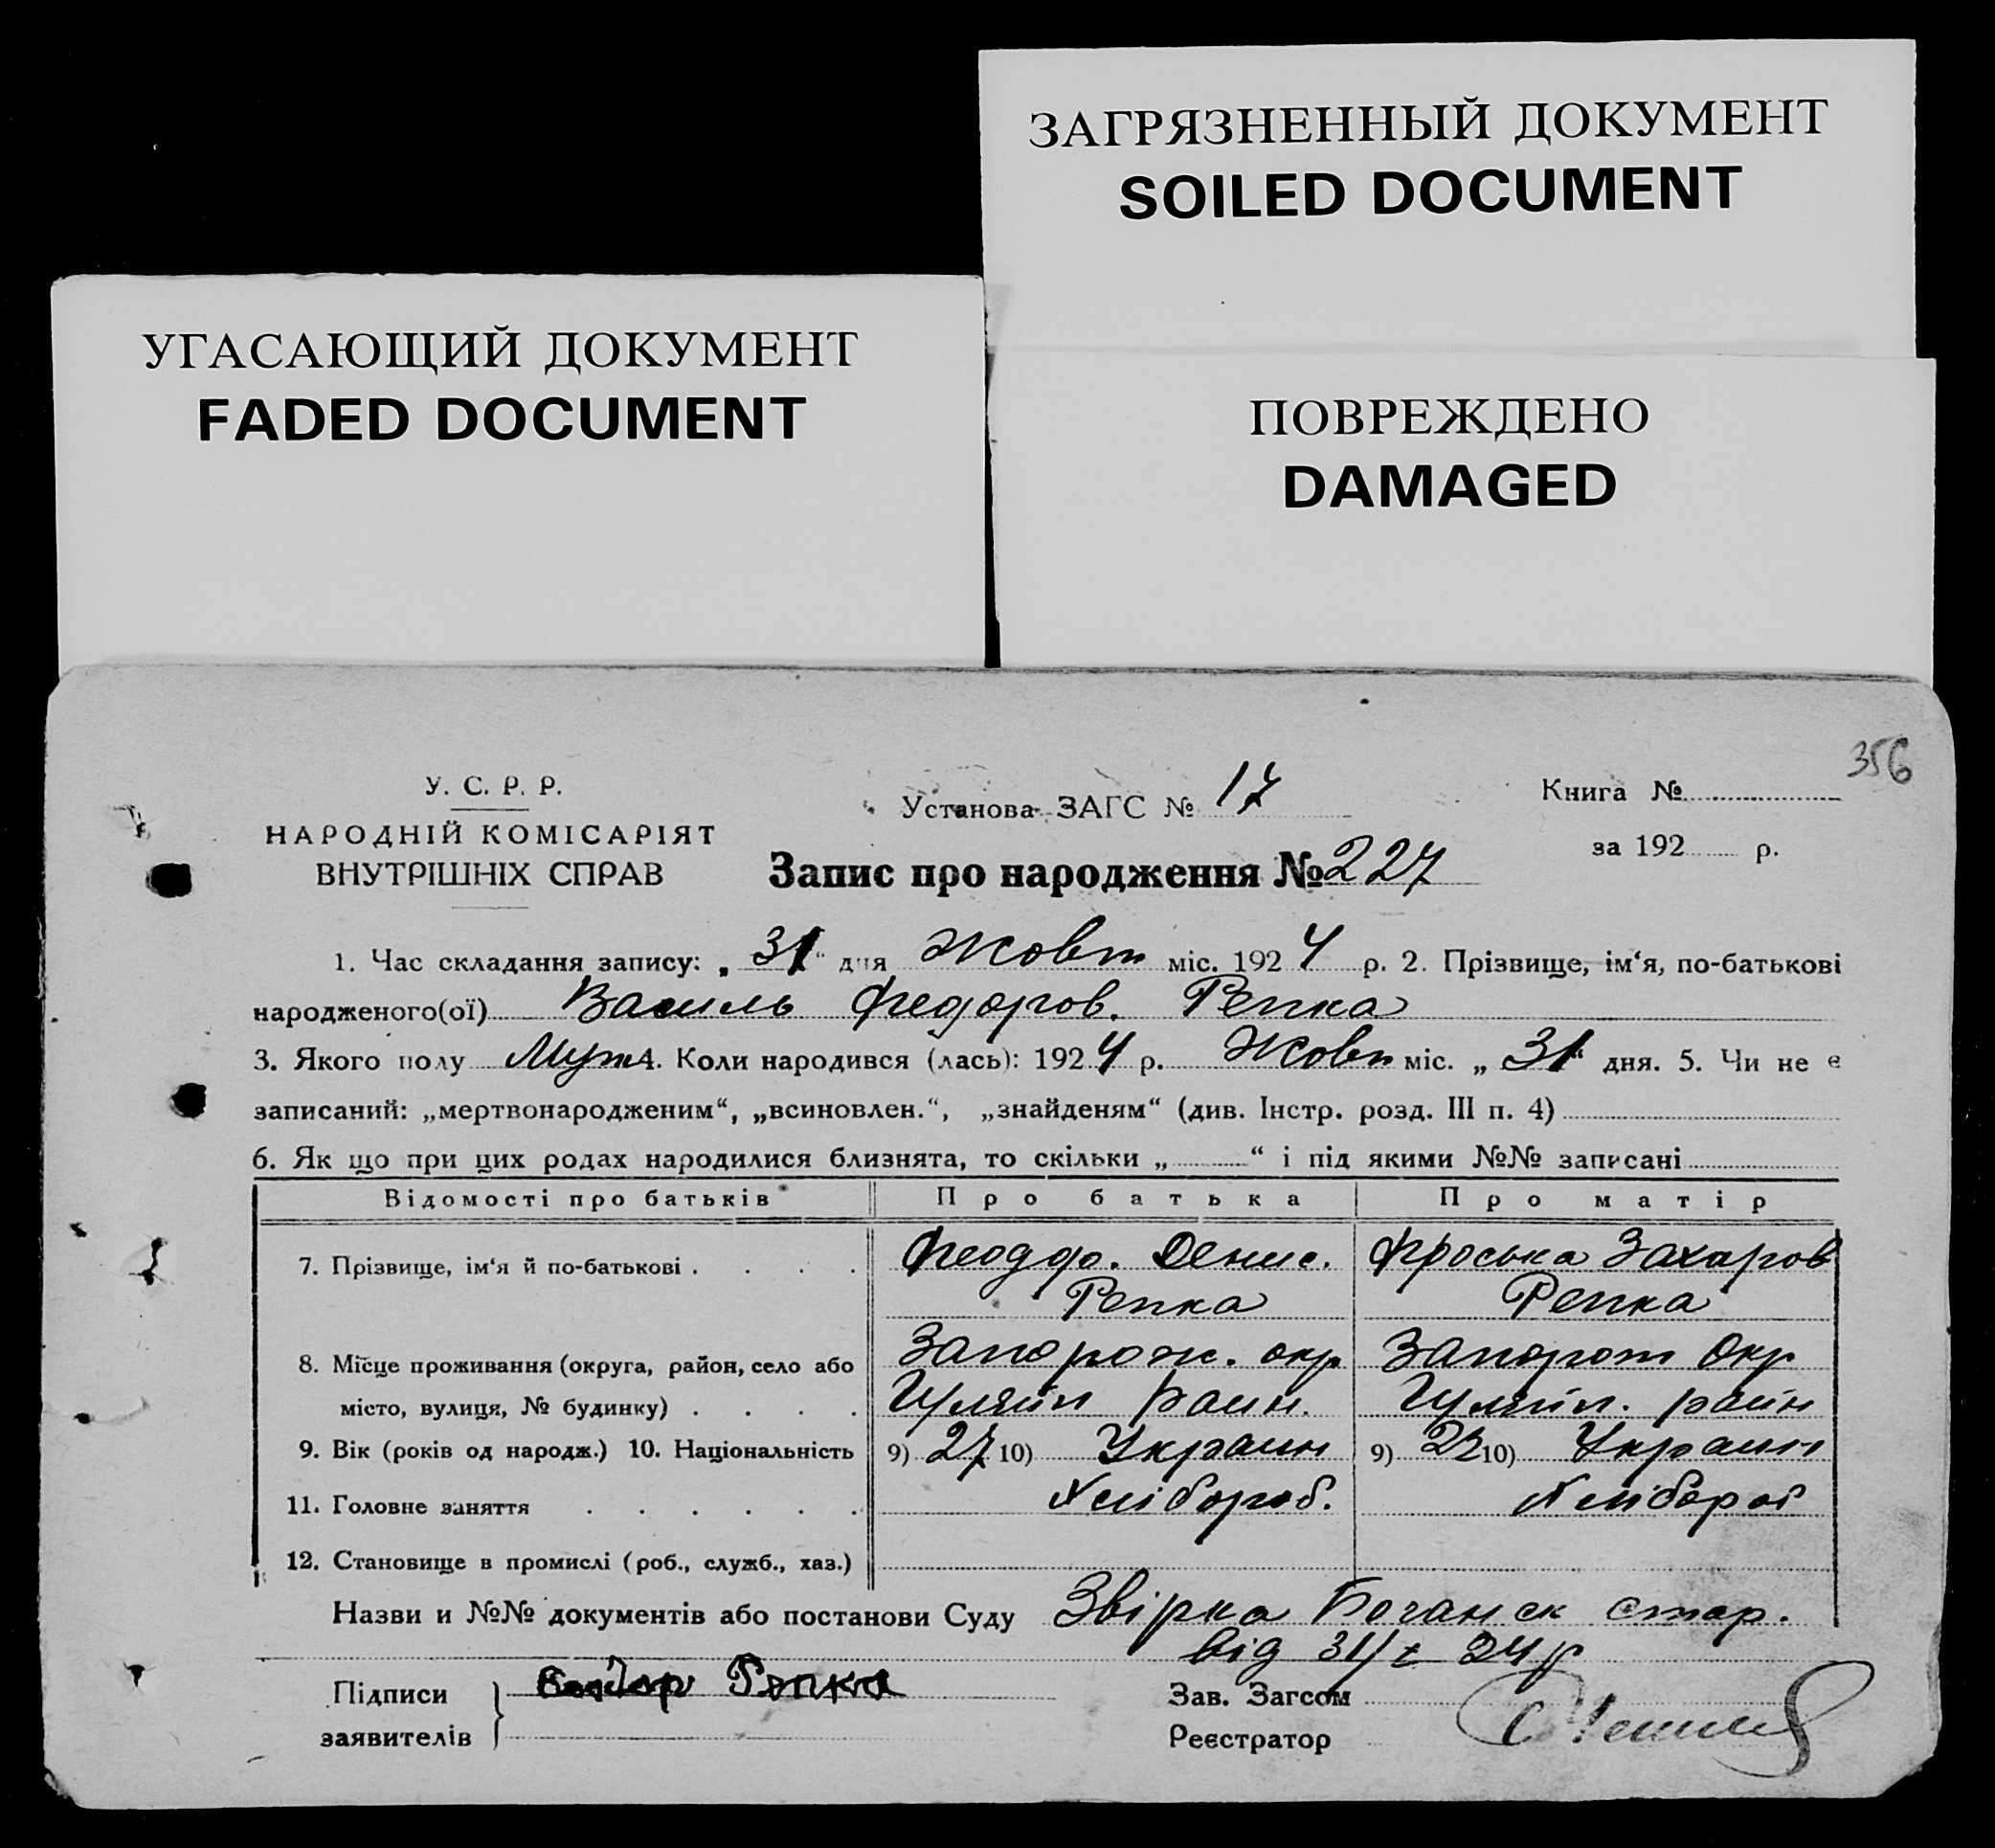 ЗАГРЯЗНЕННЫЙ ДОКУМЕНТ
SOILED DOCUMENT
УГАСАЮЩИЙ ДОКУМЕНТ
FADED DOCUMENT
ПОВРЕЖДЕНО
DAMAGED
356
У. С. Р. Р.
НАРОДНІЙ КОМІСАРІЯТ
ВНУТРІШНІХ СПРАВ
Установа ЗАГС № 17
Запис про народження № 227
Книга №
за 192 р.
1. Час складання запису: „31“ дня Жовт міс. 1924 р. 2. Прізвище, ім‘я, по-батькові
народженого(ої) Василь Феодоров. Репка
3. Якого полу Муж 4. Коли народився (лась): 1924 р. Жовт міс. „31“ дня. 5. Чи не є
записаний: „мертвонародженим“, „всиновлен.“, „знайденям“ (див. Інстр. розд. III п. 4)
6. Як що при цих родах народилися близнята, то скільки „ “ і під якими №№ записані
Відомості про батьків Про батька Про матір
7. Прізвище, ім‘я й по-батькові . . . . Феодор. Денис. Фроська Захаров
Репка Репка
8. Місце проживання (округа, район, село або Запорож. окр Запорож Окр
місто, вулиця, № будинку) . . . . Гуляйп раин. Гуляйп. район
9. Вік (років од народж.) 10. Національність 9) 27 10) Украин 9) 22 10) Украин
11. Головне заняття . . . . . . Хлібороб. Хлібороб
12. Становище в промислі (роб., служб., хаз.)
Назви и №№ документів або постанови Суду Звірка стар.
від 24 р
Підписи Репка
заявителів
Зав. Загсом
Реєстратор